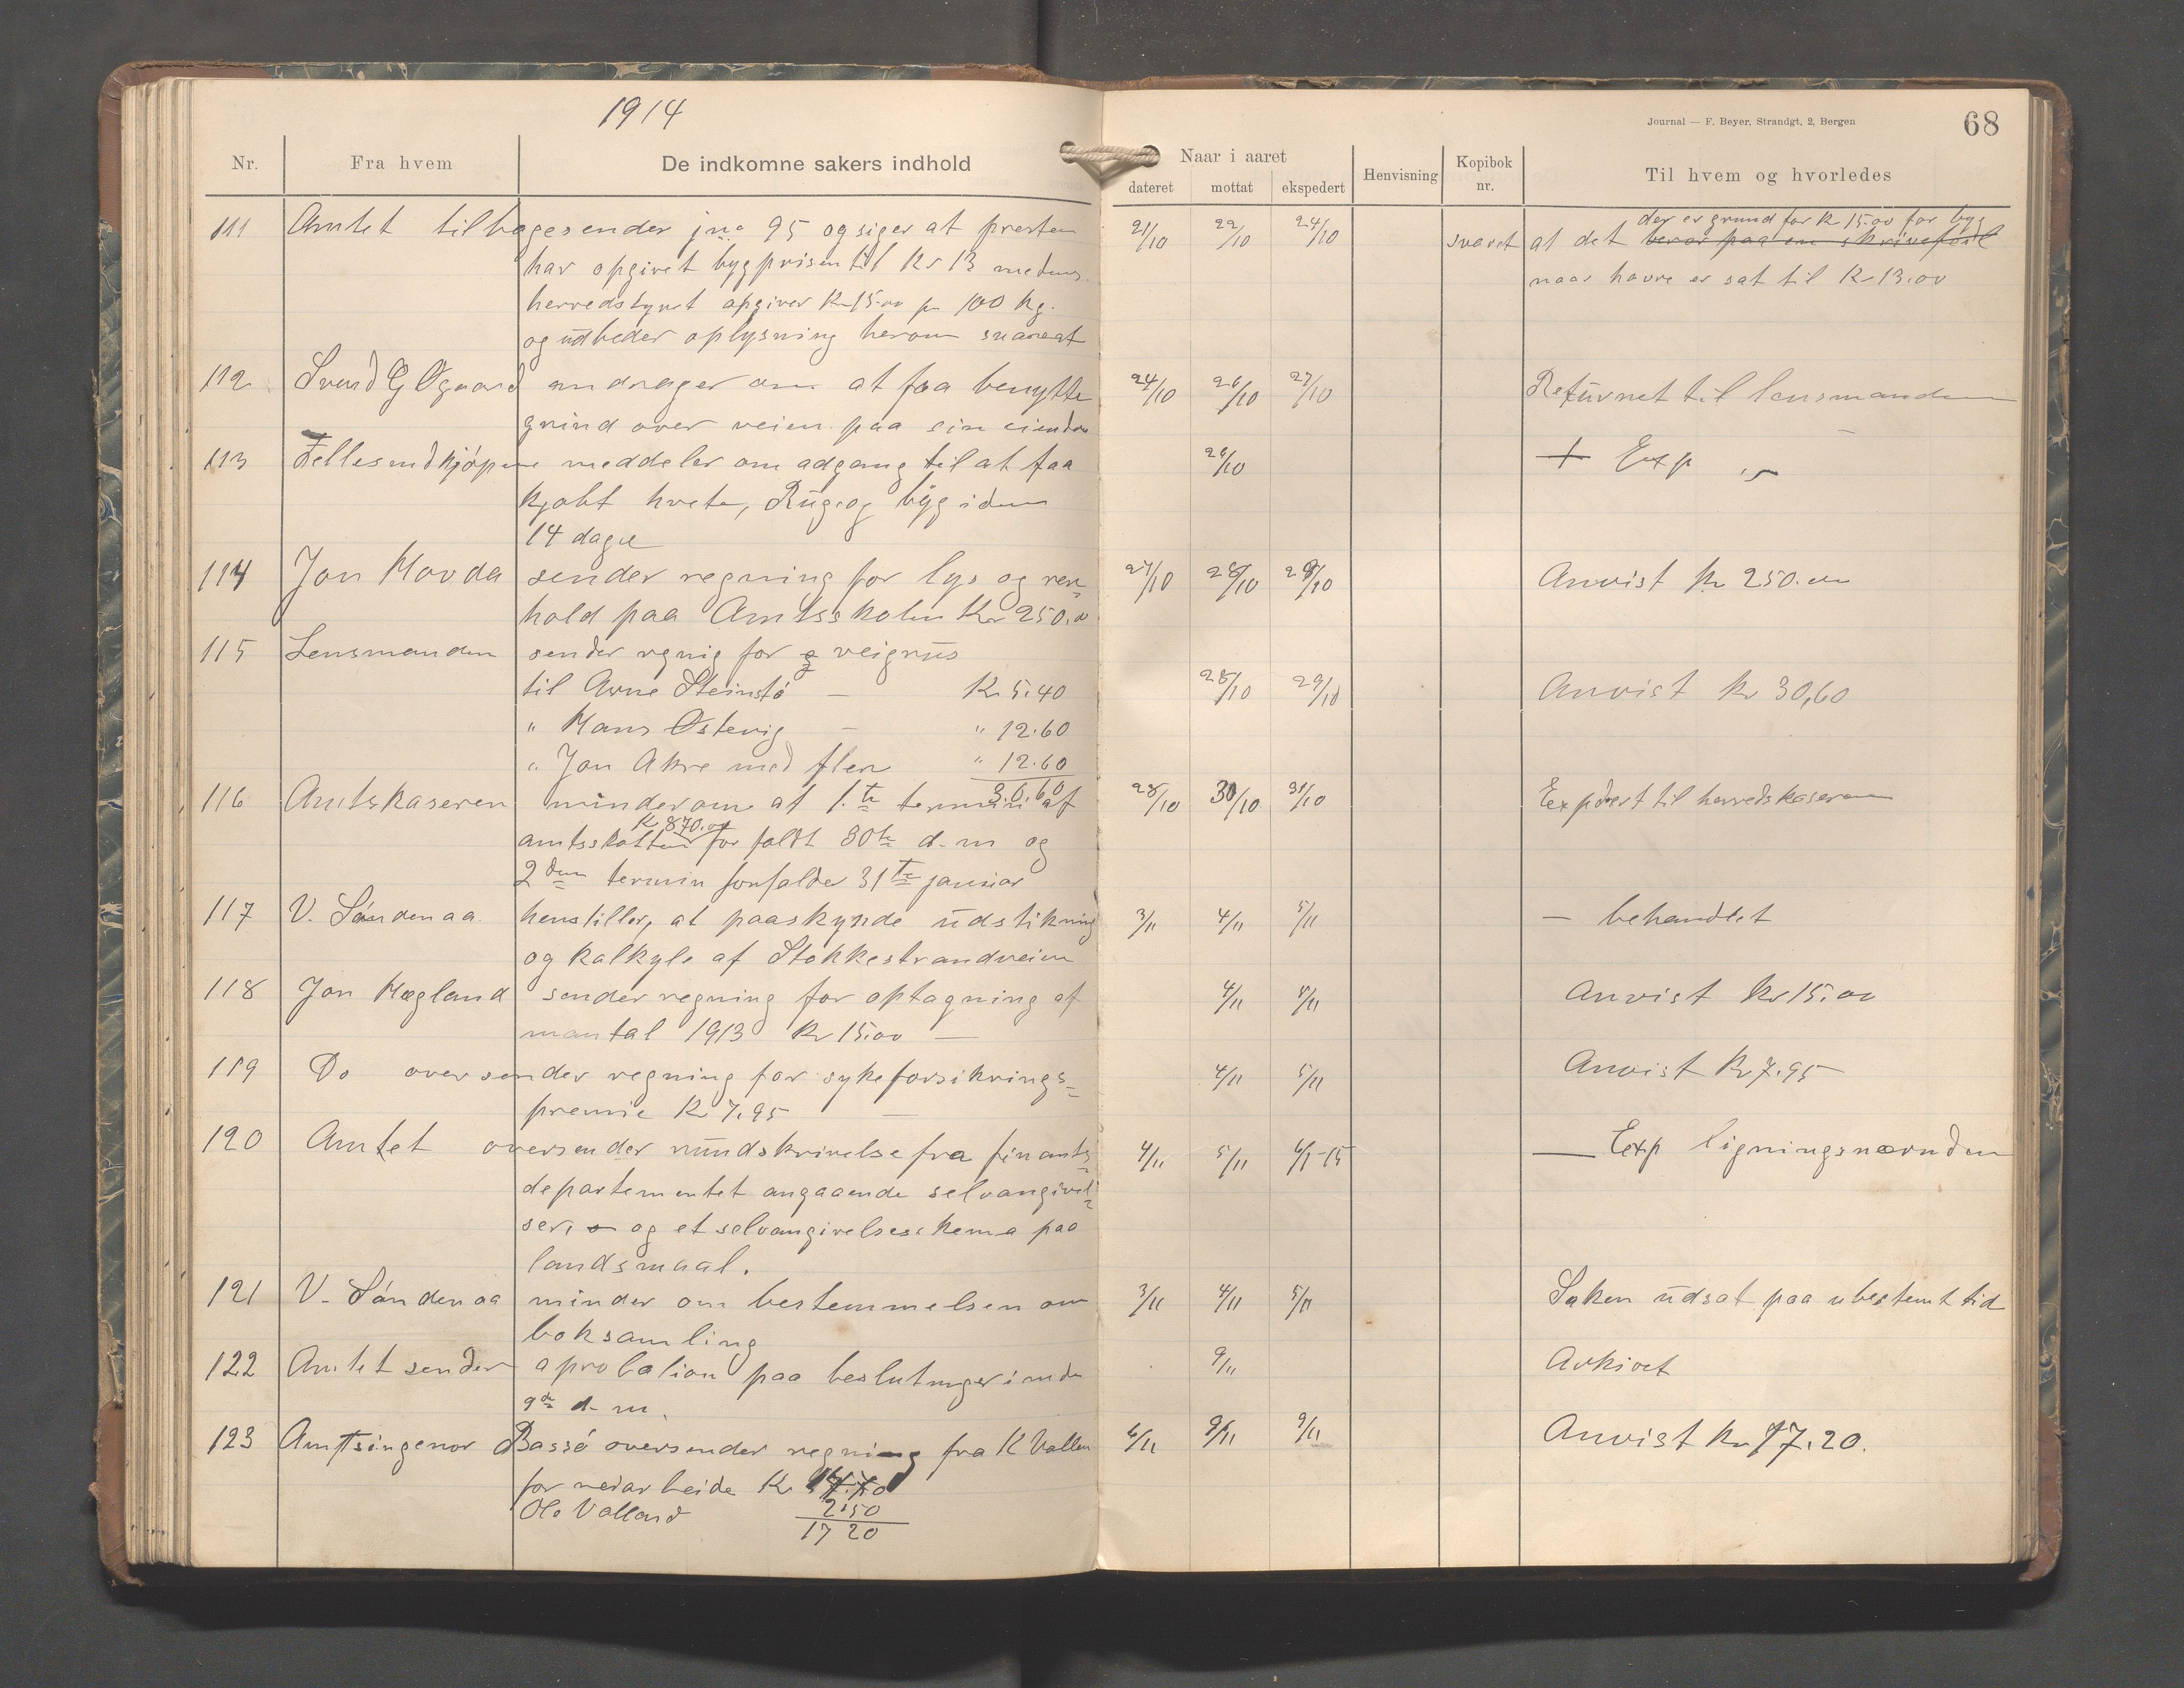 1914
Journal — F. Beyer, Strandgt. 2, Bergen
68
Nr.
Fra hvem
De indkomne sakers indhold
Naar i aaret
dateret
mottat
ekspedert
Henvisning
Kopibok nr.
Til hvem og hvorledes
der er grund for Kr 15.00 for byg
111 Amtet tilbagesender jno 95 og siger at presten 21/10 22/10 24/10 svaret at det beror paa en skrivefeil
har opgivet bygprisen til Kr 13 medens naar havre er sat til Kr 13.00
herredstyret opgiver Kr 15.00 pr 100 kg.
og udbeder oplysning herom snarest
112 Svend G Øgaard andrager om at faa benytte 24/10 26/10 27/10 Returnet til lensmanden
grind over veien paa sin eiendom
113 Fellesindkjøpene meddeler om adgang til at faa 26/10 + Exp
kjøbt hvete, Rug og byg iden
14 dage
114 Jon Hovda sender regning for lys og ren- 27/10 28/10 29/10 Anvist Kr 250.00
hold paa Amtsskolen Kr 250.00
115 Lensmanden sender regnig for veigrus
til Arne Steinstø — Kr 5.40 28/10 29/10 Anvist Kr 30,60
" Hans Østevig — " 12.60
" Jon Akre med flere " 12.60
30.60
116 Amtskaseren minder om at 1.te termin af 28/10 30/10 31/10 Expdert til herredskaseren
Kr 870.00
amtsskatten forfaldt 30te d.m og
2den termin forfalder 31te januar
117 V. Søndenaa henstiller, at paaskynde udstikning 3/11 4/11 5/11 — behandlet
og kalkyle af Stokkestrandveien
118 Jon Hægland sender regning for optagning af 4/11 5/11 Anvist Kr 15.00
mantal 1913 Kr 15.00 —
119 Do oversender regning for sykeforsikrings- 4/11 5/11 Anvist Kr 7.95
premie Kr 7.95 —
120 Amtet oversender rundskrivelse fra finants- 4/11 5/11 4/1-15 — Exp ligningsnævnden
departementet angaaende selvangivel-
ser, og et selvangivelsesskema paa
landsmaal.
121 V. Søndenaa minder om bestemmelsen om 3/11 4/11 5/11 Saken udsat paa ubestemt tid
boksamling
122 Amtet sender aprobation paa beslutnger inde 9/11 Arkivet
9de d.m.
123 Amtsingenør Bassø oversender regning fra K Vallen 6/11 9/11 9/11 Anvist Kr 17.20.
for veiarbeide Kr 14.70
Ole Valland 2.50
17 20